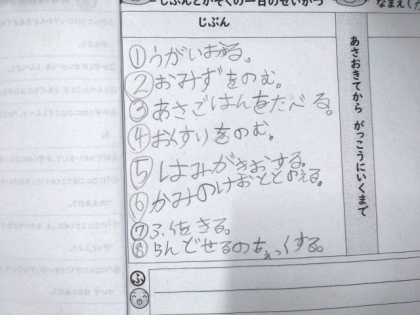 じぶんとかぞくの一日のせいかつ
なまえ
じぶん
あさおきてから がっこうにいくまで
①うがいおする。
②おみずをのむ。
③あさごはんをたべる。
④おくすりをのむ。
⑤はみがきおする。
⑥かみのけおととのえる。
⑦ふくをきる。
⑧らんどせるのちぇっくする。
ふ